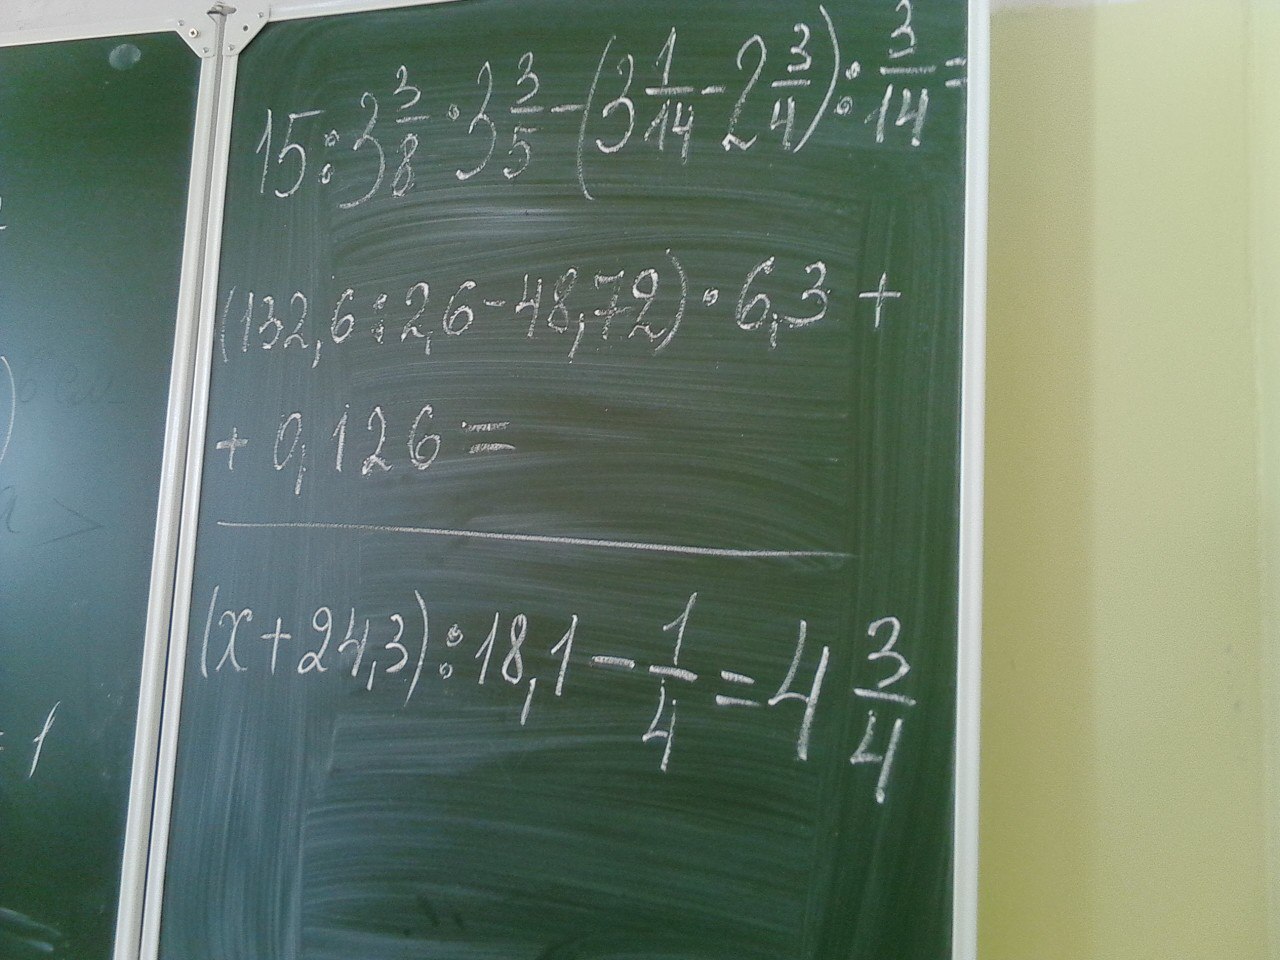 15 : 3 3/8 · 3 3/5 - (3 1/14 - 2 3/4) : 3/14 =
(132,6 : 2,6 - 48,72) · 6,3 +
+ 0,126 =
(x + 24,3) : 18,1 - 1/4 = 4 3/4
= 1